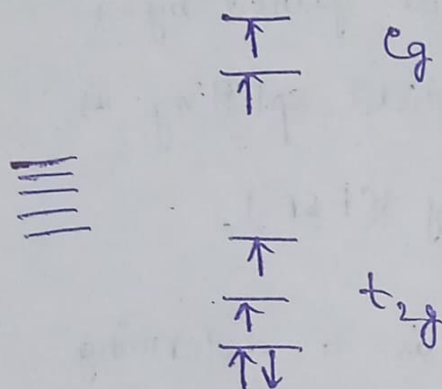 eg
t2g